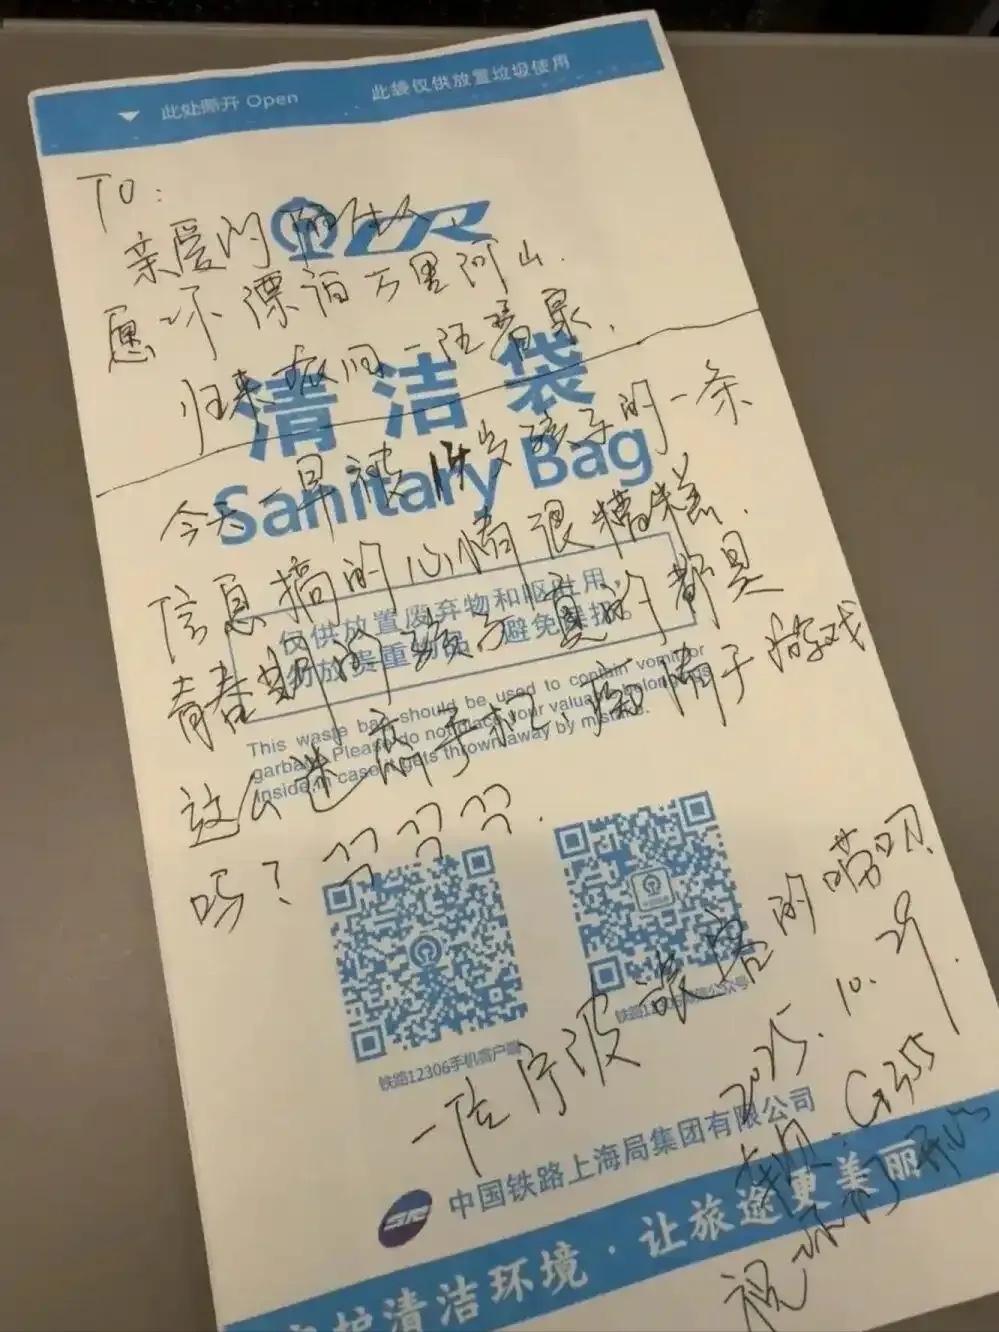 此处撕开 Open
此袋仅供放置垃圾使用
TO:
亲爱的
愿你漂泊万里河山.
归来 一汪春泉.
清洁袋
Sanitary Bag
今天一早被14岁孩子的一条
信息搞的心情很糟糕.
仅供放置废弃物和呕吐用,
勿放贵重物品, 避免误投。
青春期的孩子真的都是
This waste bag should be used to contain vomit or
garbage. Please do not place your valuable belongings
inside in case it gets thrown away by mistake.
这么迷恋手机、痴情于游戏
吗?
铁路12306手机客户端
铁路12306微信公众号
一位宁波旅客的唠叨
2025.10.29.
G355
祝你们开心
中国铁路上海局集团有限公司
护清洁环境·让旅途更美丽